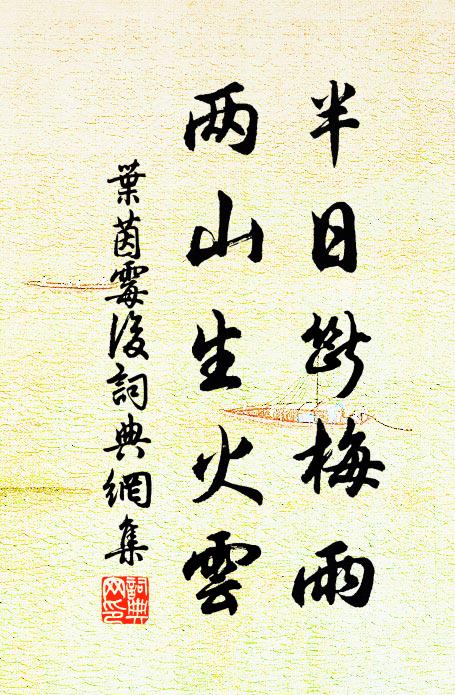 半日断梅雨
两山生火雲
葉茵霉後詞典網集
詞典
网印